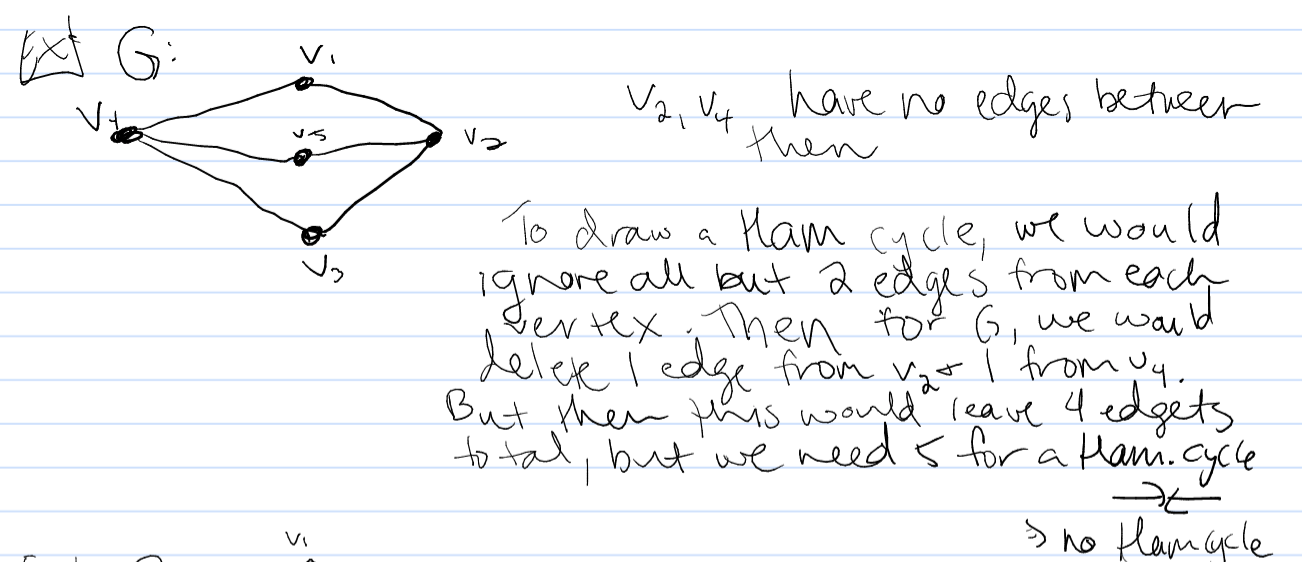 Ex G:
V1
V4
V5
V2
V3
V2, V4 have no edges between
then
To draw a Ham cycle, we would
ignore all but 2 edges from each
vertex. Then for G, we would
delete 1 edge from v2 & 1 from v4.
But then this would leave 4 edgets
total, but we need 5 for a Ham. cycle
→←
⇒ no Ham cycle
V1